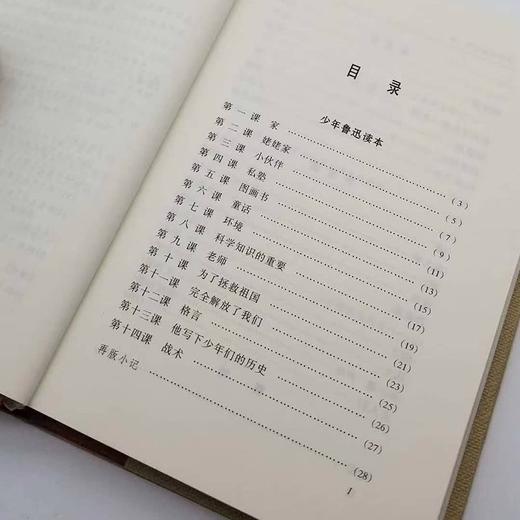 目 录
少年鲁迅读本
第 一 课 家 ……………………… (3)
第 二 课 姥姥家 ……………………… (5)
第 三 课 小伙伴 ……………………… (7)
第 四 课 私塾 ……………………… (9)
第 五 课 图画书 ……………………… (11)
第 六 课 童话 ……………………… (13)
第 七 课 环境 ……………………… (15)
第 八 课 科学知识的重要 ……………………… (17)
第 九 课 老师 ……………………… (19)
第 十 课 为了拯救祖国 ……………………… (21)
第十一课 完全解放了我们 ……………………… (23)
第十二课 格言 ……………………… (25)
第十三课 他写下少年们的历史 ……………………… (26)
第十四课 战术 ……………………… (27)
再版小记 ……………………… (28)
1